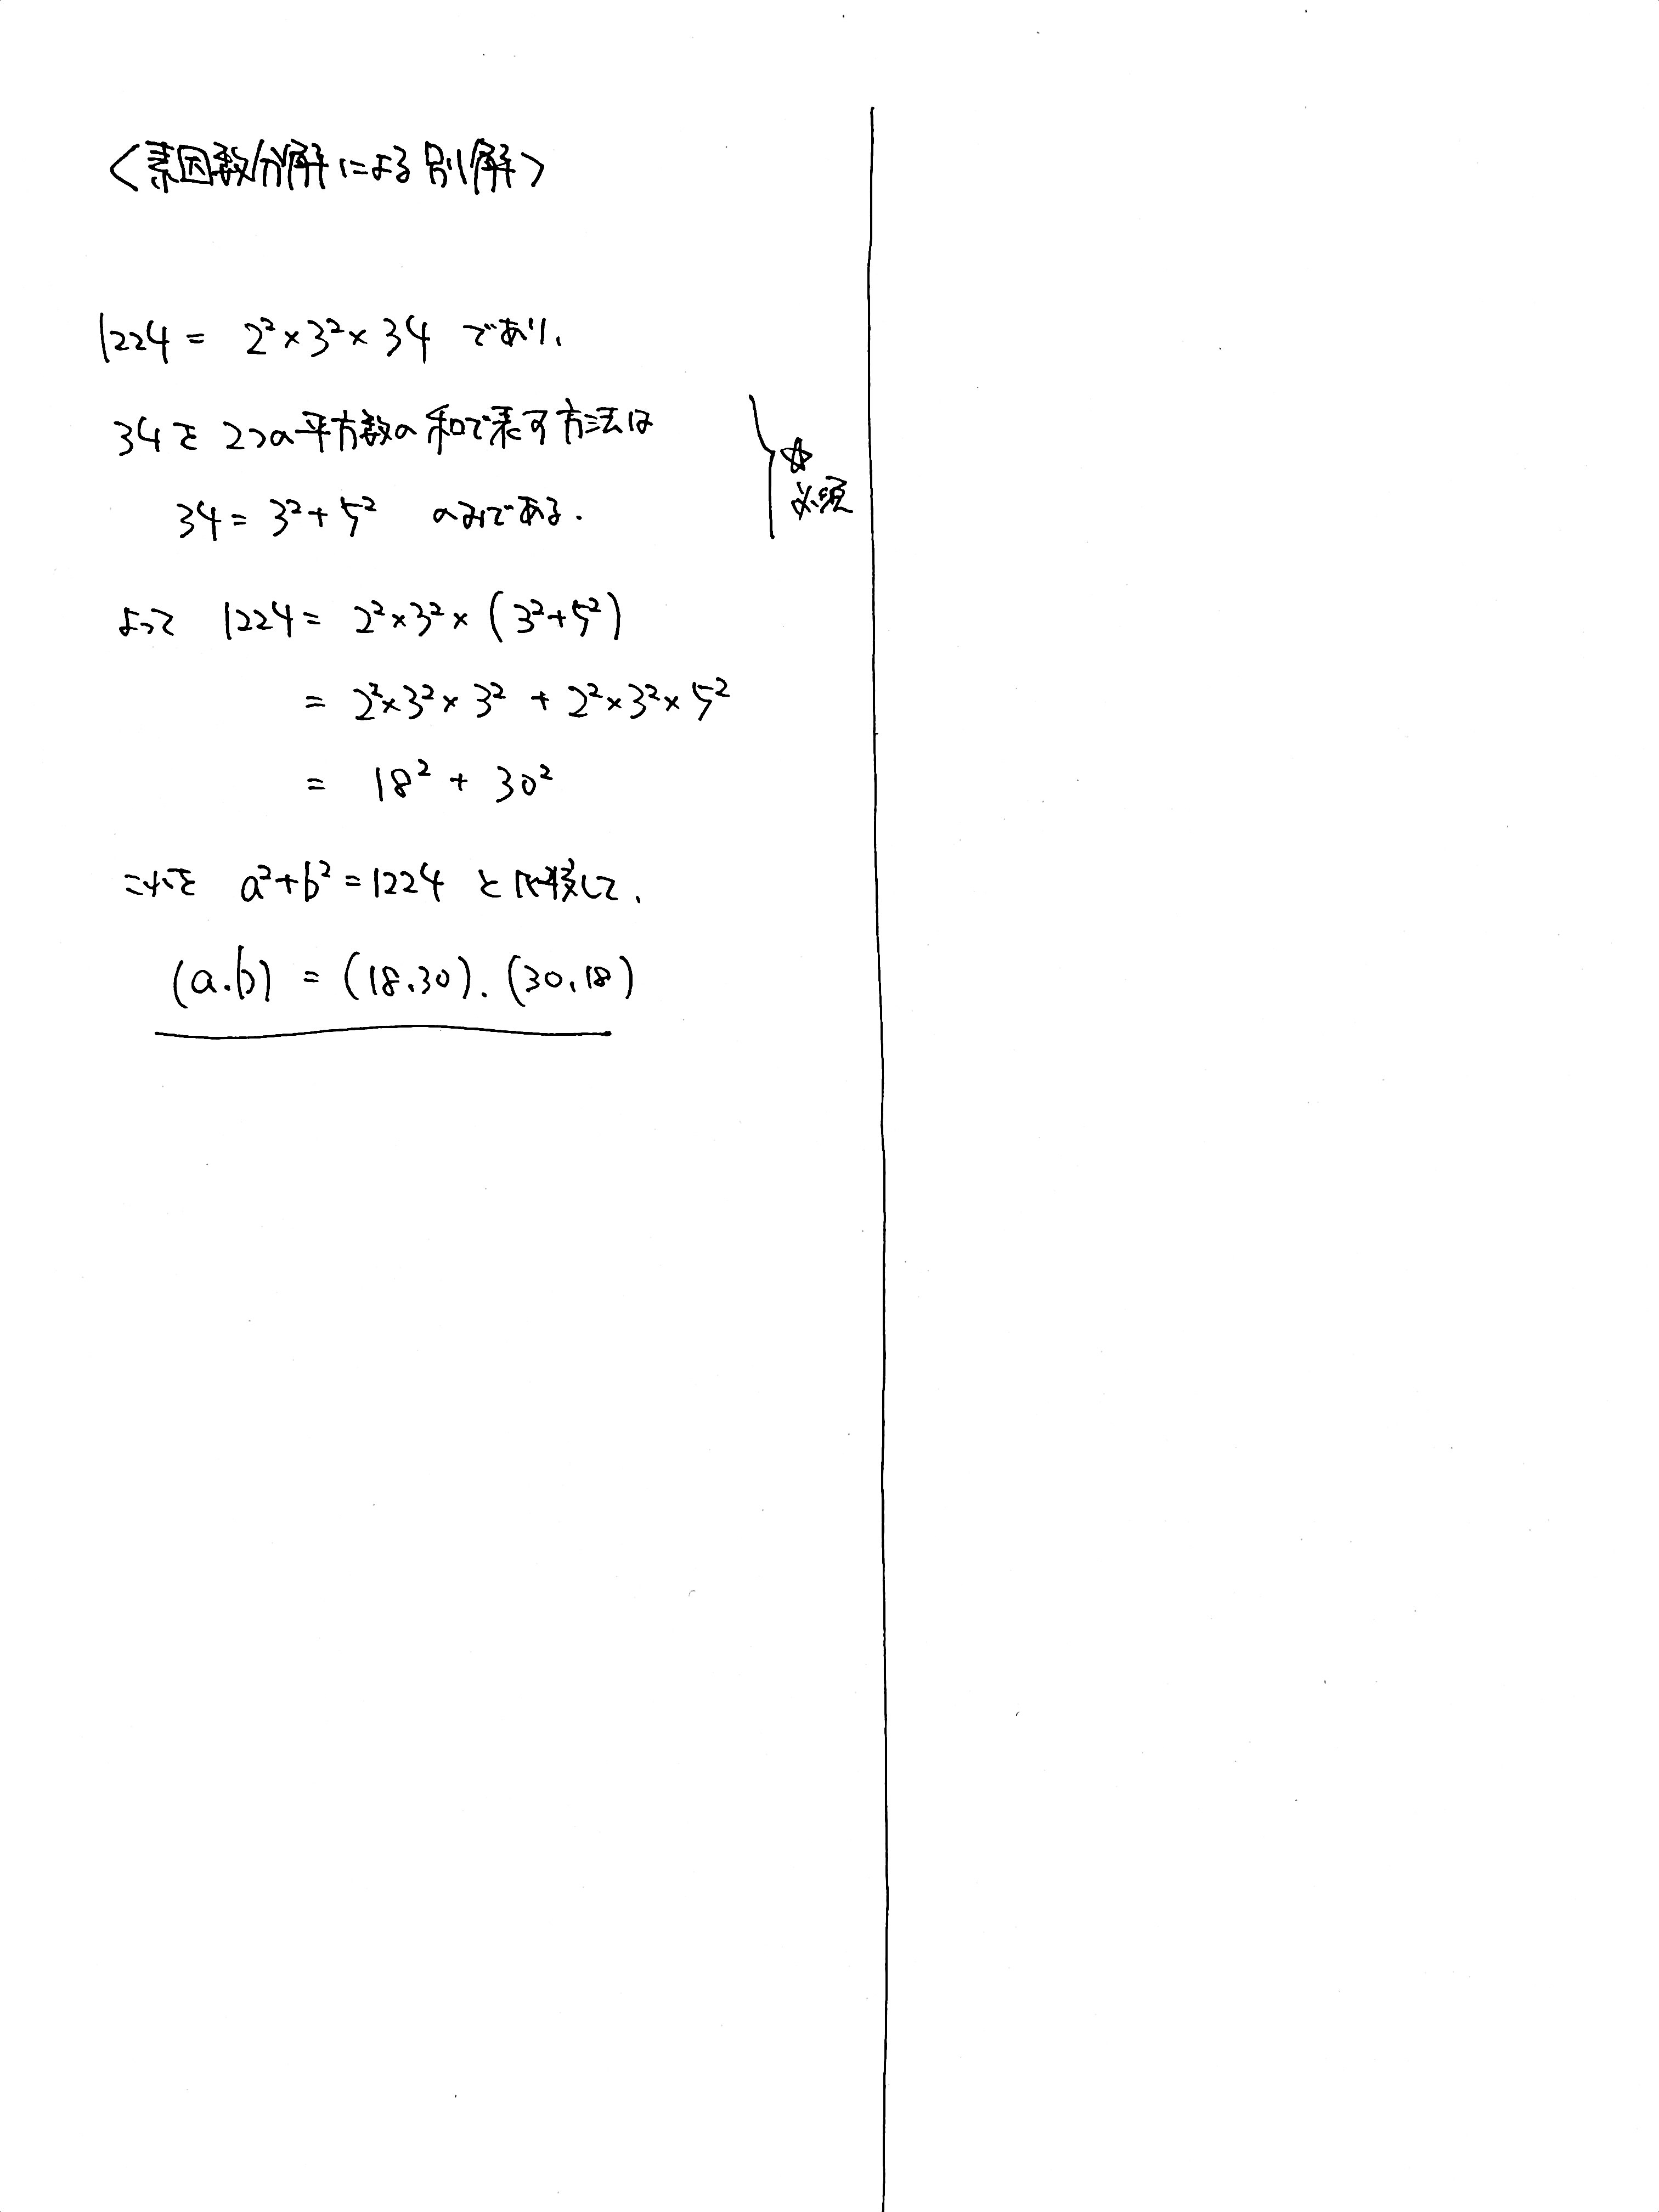 <素因数分解による別解>
1224 = 2² × 3² × 34 であり、
34を 2つの平方数の和で表す方法は
34 = 3² + 5² のみである.
☆
必須
よって 1224 = 2² × 3² × (3² + 5²)
= 2² × 3² × 3² + 2² × 3² × 5²
= 18² + 30²
これを a² + b² = 1224 と比較して、
(a.b) = (18.30). (30.18)